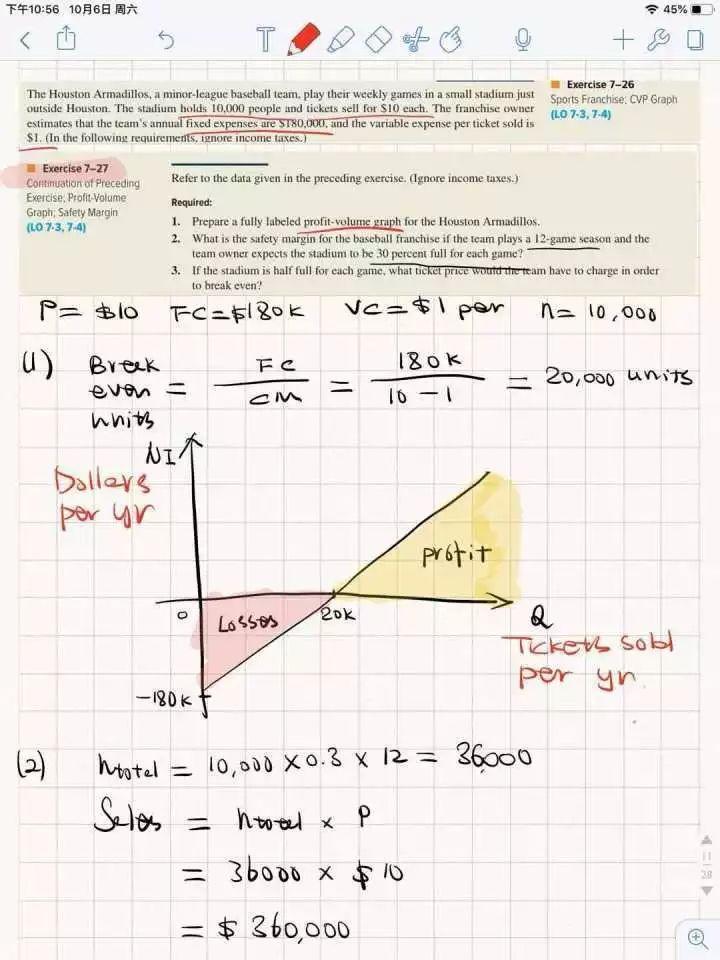 下午10:56 10月6日 周六
45%
T
The Houston Armadillos, a minor-league baseball team, play their weekly games in a small stadium just
outside Houston. The stadium holds 10,000 people and tickets sell for $10 each. The franchise owner
estimates that the team's annual fixed expenses are $180,000, and the variable expense per ticket sold is
$1. (In the following requirements, ignore income taxes.)
Exercise 7–26
Sports Franchise; CVP Graph
(LO 7-3, 7-4)
Exercise 7–27
Continuation of Preceding
Exercise; Profit-Volume
Graph; Safety Margin
(LO 7-3, 7-4)
Refer to the data given in the preceding exercise. (Ignore income taxes.)
Required:
1. Prepare a fully labeled profit-volume graph for the Houston Armadillos.
2. What is the safety margin for the baseball franchise if the team plays a 12-game season and the
team owner expects the stadium to be 30 percent full for each game?
3. If the stadium is half full for each game, what ticket price would the team have to charge in order
to break even?
P = $10 FC = $180K VC = $1 per n = 10,000
(1) Break even units = FC / CM = 180K / 10 − 1 = 20,000 units
NI
Dollars
per yr
profit
0
Losses
20K
Q
Tickets sold
per yr.
−180K
(2) ntotal = 10,000 × 0.3 × 12 = 36,000
Sales = ntotal × P
= 36000 × $10
= $360,000
11
28